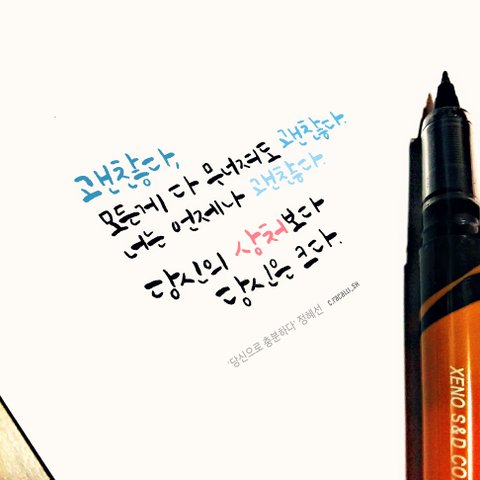 괜찮다,
모든게 다 무너져도 괜찮다.
너는 언제나 괜찮다.
당신의 상처보다
당신은 크다.
'당신으로 충분하다' 정혜선
XENO S&D CO